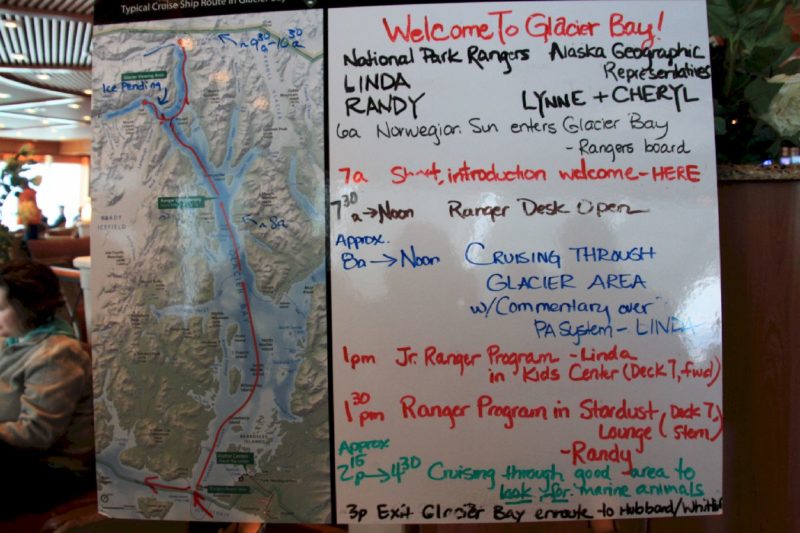 Typical Cruise Ship Route in Glacier Bay
~9³⁰a-10³⁰a
Glacier Viewing Area
Ice Pending
~8a
BRADY
ICEFIELD
GLACIER BAY
BEARDSLEE
ISLANDS
Visitor Center
Welcome To Glacier Bay!
National Park Rangers
LINDA
RANDY
Alaska Geographic
Representatives
LYNNE + CHERYL
6a Norwegian Sun enters Glacier Bay
- Rangers board
7a Short, introduction welcome - HERE
7³⁰a → Noon Ranger Desk Open
Approx.
8a → Noon CRUISING THROUGH
GLACIER AREA
w/Commentary over
PA System - LINDA
1pm Jr. Ranger Program - Linda
in Kids Center (Deck 7, fwd)
1³⁰pm Ranger Program in Stardust (Deck 7,
Lounge stern)
- Randy
Approx
2¹⁵p → 4³⁰ Cruising through good area to
look for marine animals
3p Exit Glacier Bay enroute to Hubbard/